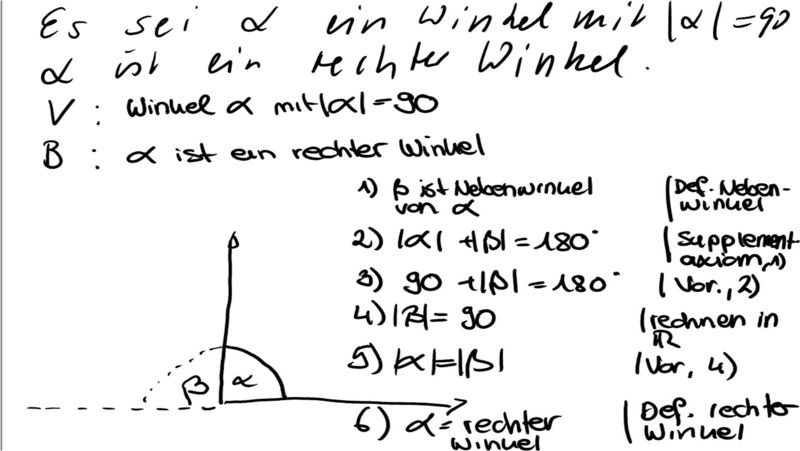 Es sei α ein Winkel mit |α| = 90
α ist ein rechter Winkel.
V : Winkel α mit |α| = 90
B : α ist ein rechter Winkel
1) β ist Nebenwinkel | Def. Neben-
von α winkel
2) |α| + |β| = 180° | Supplement
axiom, 1)
3) 90 + |β| = 180° | Vor., 2)
4) |β| = 90 | rechnen in
ℝ
5) |α| = |β| | Vor, 4)
β α
6) α = rechter | Def. rechter
Winkel Winkel